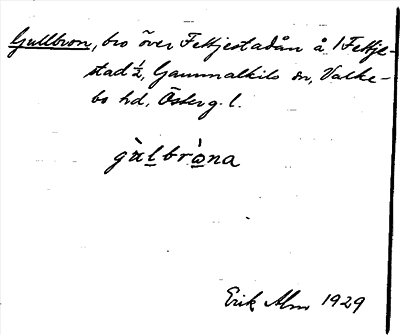 Gullbron, bro över Fettjestadån å 1 Fettje-
stad ½, Gammalkils sn, Valke-
bo hd, Österg. l.
gùlbròna
Erik Alm 1929